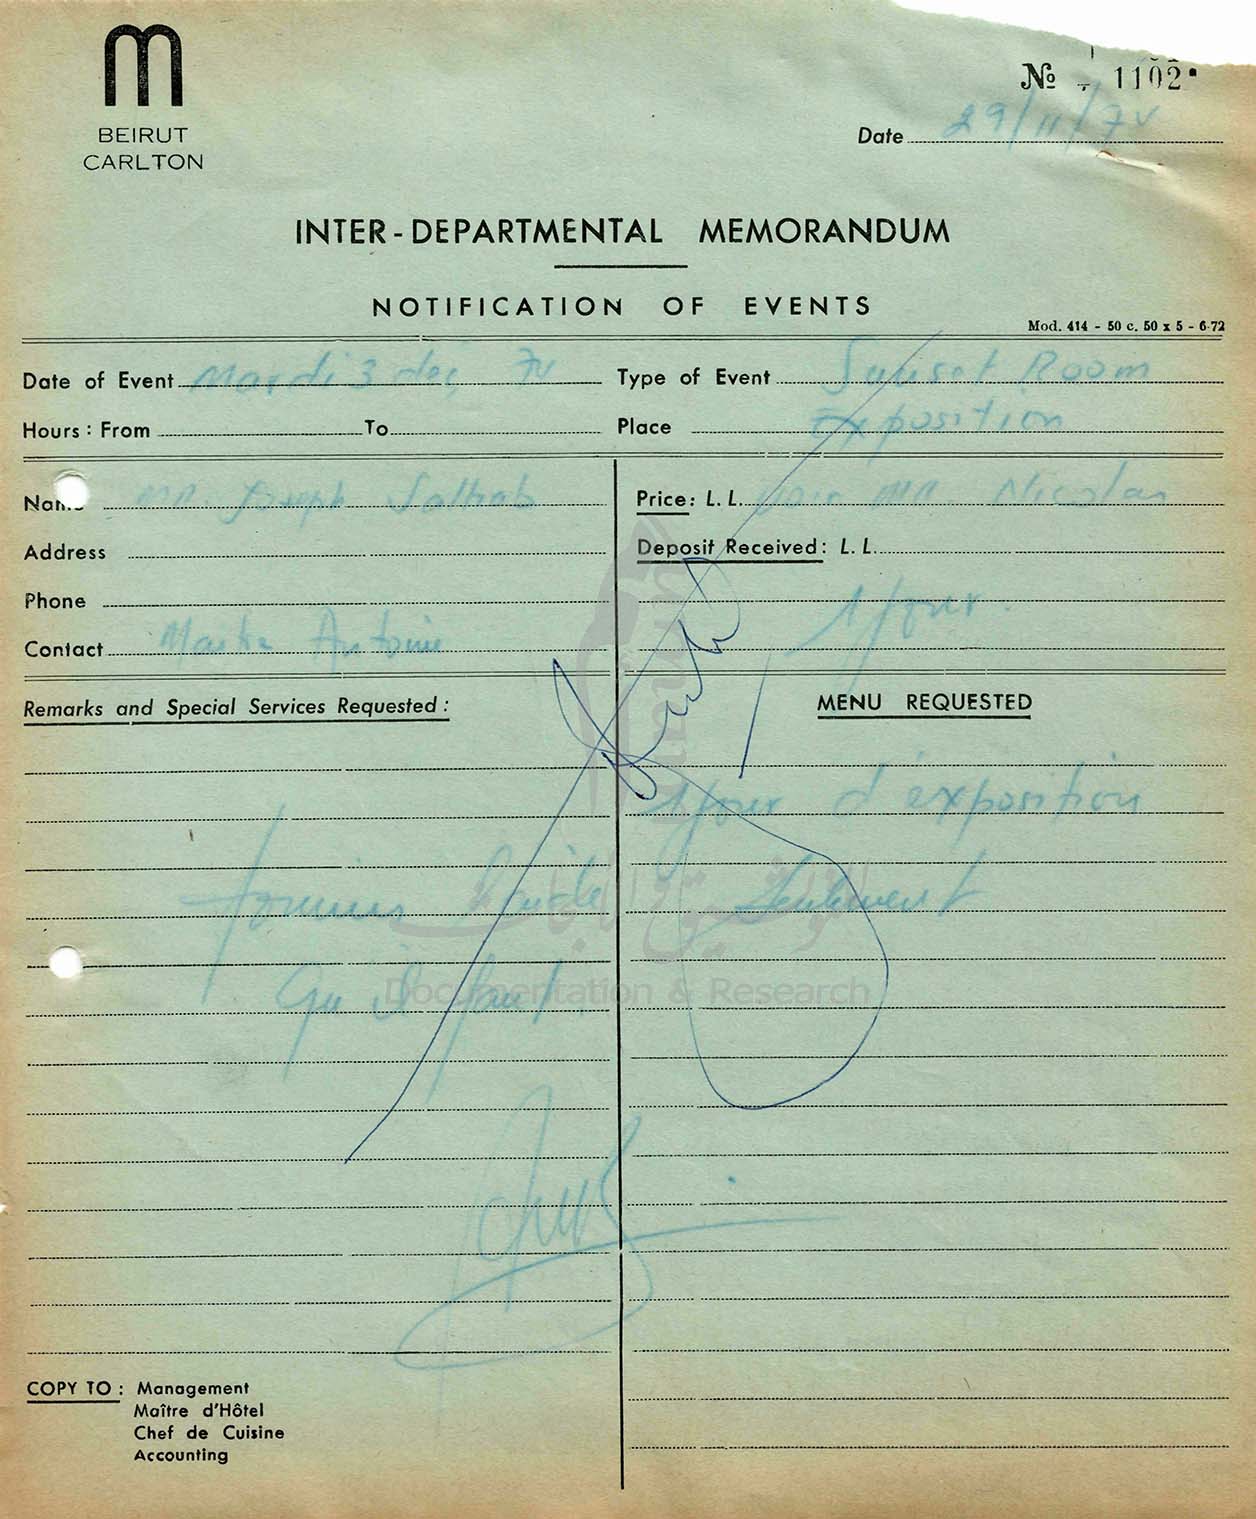 m
BEIRUT
CARLTON
№ 1102
Date 29/11/74
INTER-DEPARTMENTAL MEMORANDUM
NOTIFICATION OF EVENTS
Mod. 414 - 50 c. 50 x 5 - 6-72
Date of Event Mardi 3 déc 74
Type of Event Sunset Room
Hours: From To
Place Exposition
Name Mr. Joseph
Price: L. L. voir Mr. Nicolas
Address
Deposit Received: L. L.
Phone
1 jour.
Contact Maitre Antoine
Remarks and Special Services Requested:
MENU REQUESTED
1 jour d'exposition
seulement
qu'il faut.
Documentation & Research
COPY TO: Management
Maître d'Hôtel
Chef de Cuisine
Accounting